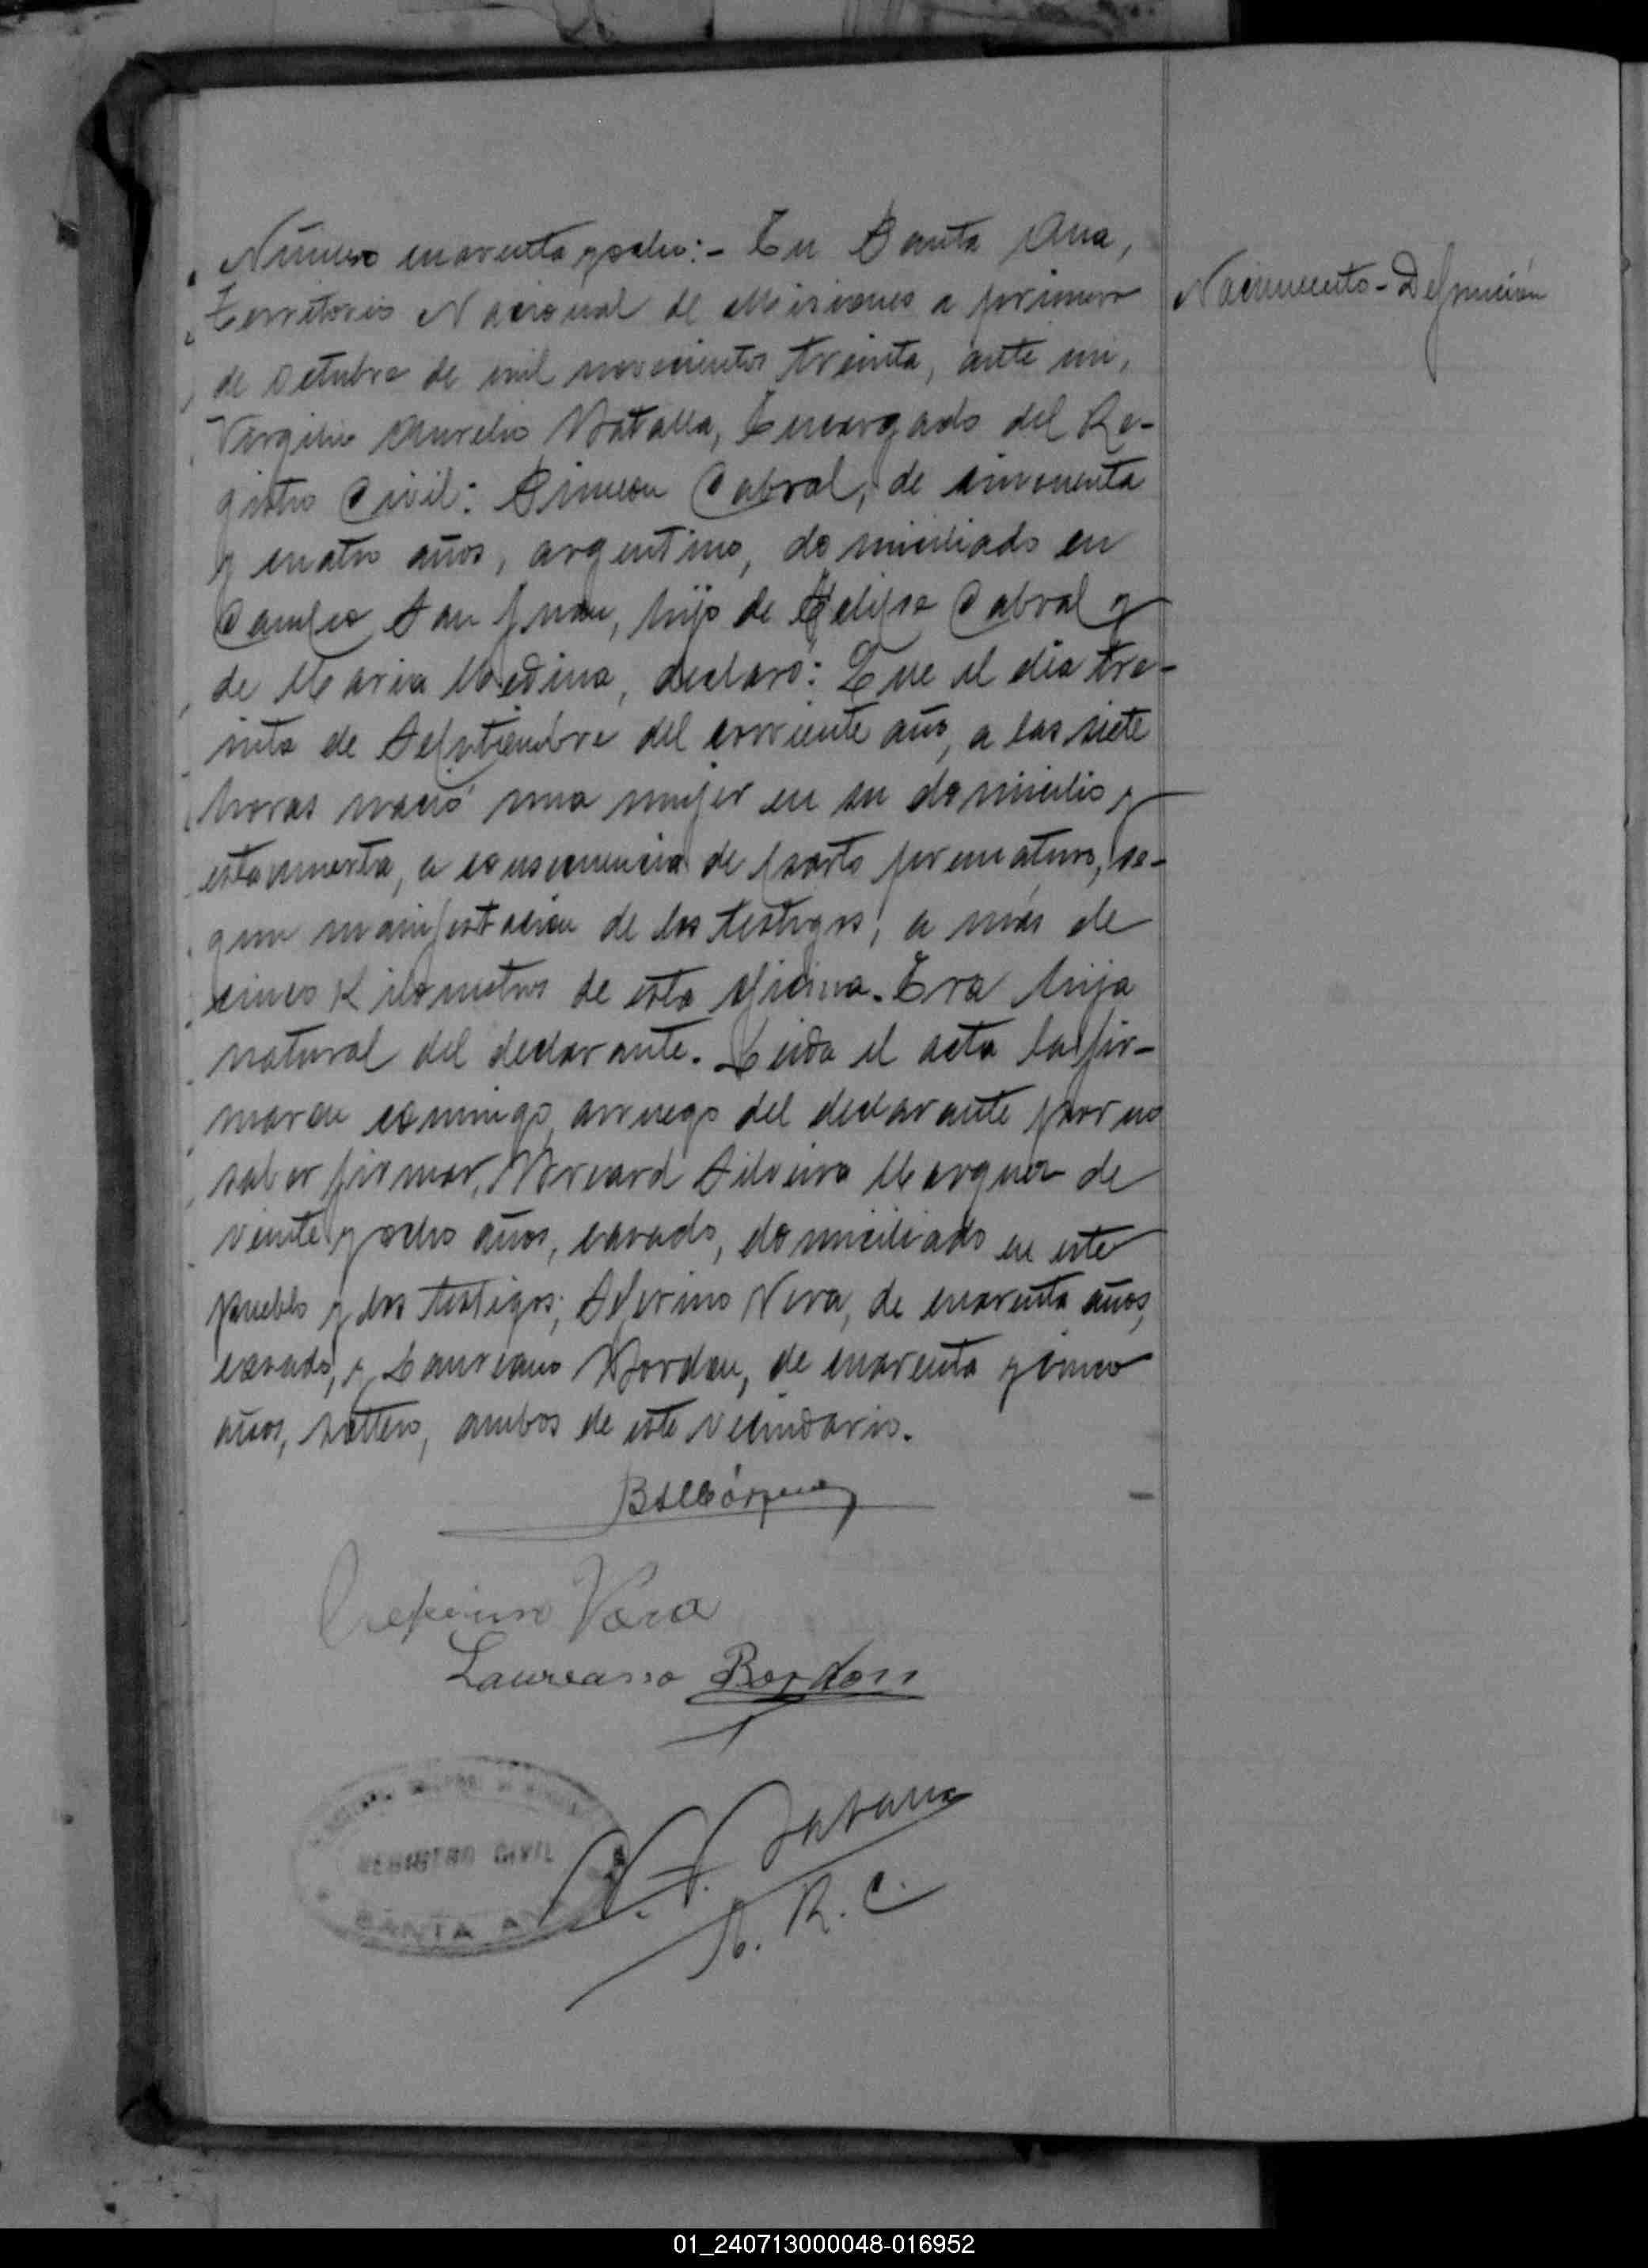 Número cuarenta y ocho:- En Santa Ana,
Territorio Nacional de Misiones a primero
de Octubre de mil novecientos treinta, ante mi,
Virgilio Aurelio Batalla, Encargado del Re-
gistro Civil: Simeon Cabral, de cincuenta
y cuatro años, argentino, domiciliado en
Campo San Juan, hijo de Felipe Cabral y
de Maria Medina, declaró: Que el dia tre-
inta de Septiembre del corriente año, a las siete
horas nació una mujer en su domicilio y
esta muerta, a consecuencia de parto prematuro, se-
gun manifestacion de los testigos, a más de
cinco Kilometros de esta oficina. Era hija
natural del declarante. Leida el acta la fir-
maron conmigo, arruego del declarante por no
saber firmar, Silveira Marquez de
veinte y ocho años, casado, domiciliado en este
pueblo y los testigos; Vera, de cuarenta años,
casado, y Laureano Bordon, de cuarenta y cinco
años, soltero, ambos de este vecindario.
Nacimiento - Defunción
BSMárquez
Vera
Laureano Bordon
REGISTRO CIVIL
SANTA ANA
R. C.
01_240713000048-016952